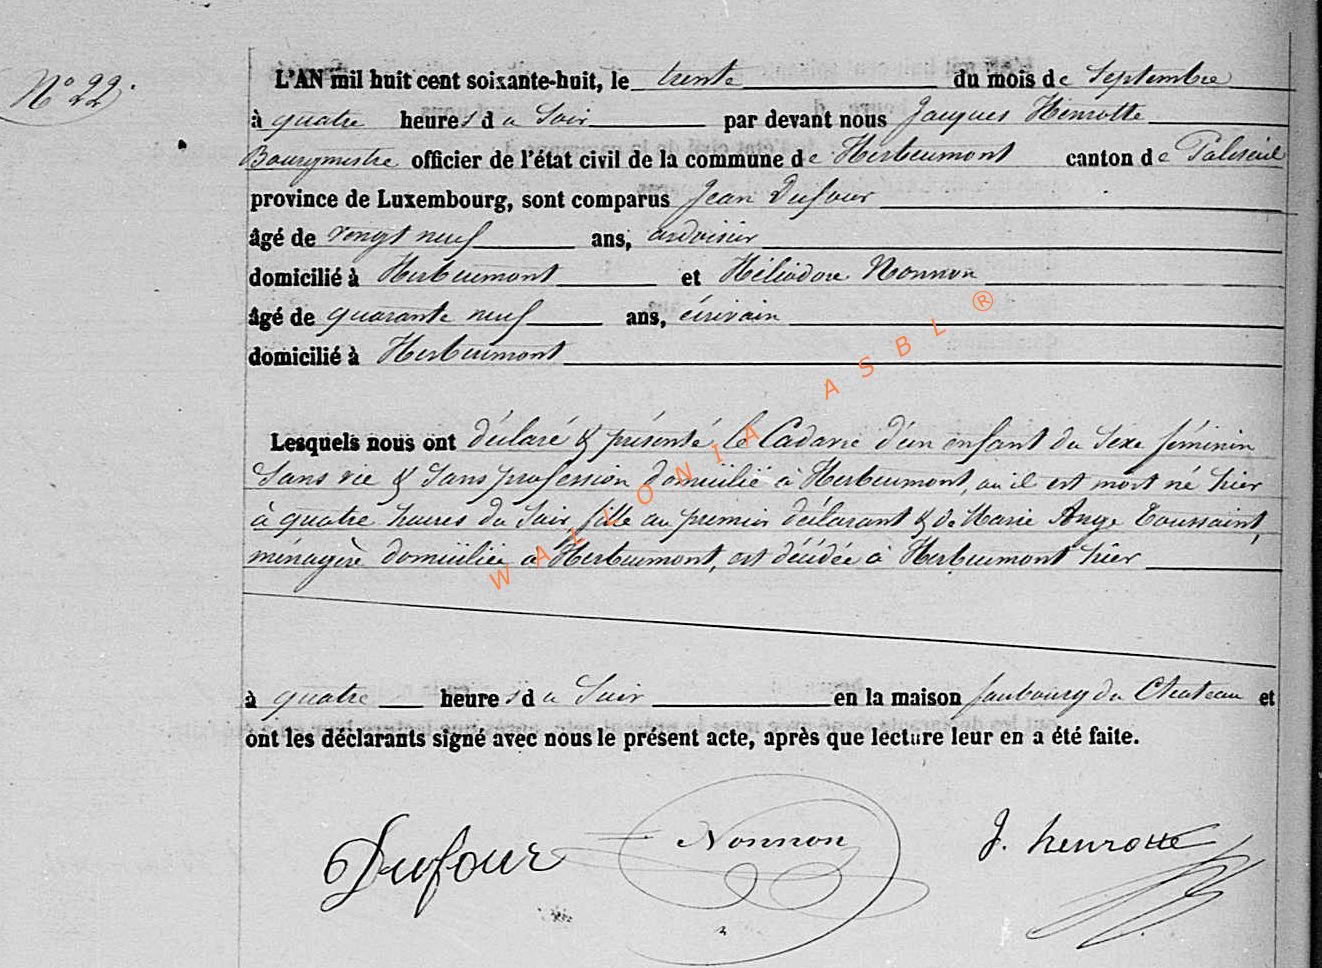 N° 22.
L'AN mil huit cent soixante-huit, le trente du mois de Septembre
à quatre heures du Soir par devant nous Jacques Henrotte
Bourgmestre officier de l'état civil de la commune de Herbeumont canton de Paliseul
province de Luxembourg, sont comparus Jean Dufour
âgé de vingt neuf ans, ardoisier
domicilié à Herbeumont et Héliodore Nonnon
âgé de quarante neuf ans, écrivain
domicilié à Herbeumont
Lesquels nous ont déclaré & présenté le Cadavre d'un enfant du Sexe féminin
Sans vie & Sans profession domicilié à Herbeumont, où il est mort né hier
à quatre heures du Soir, fille au premier déclarant & de Marie Ange Toussaint,
ménagère domiciliée à Herbeumont, est décédée à Herbeumont hier
à quatre heures du Soir en la maison faubourg du Chateau et
ont les déclarants signé avec nous le présent acte, après que lecture leur en a été faite.
Dufour Nonnon J. henrotte
WALLONIA ASBL ®